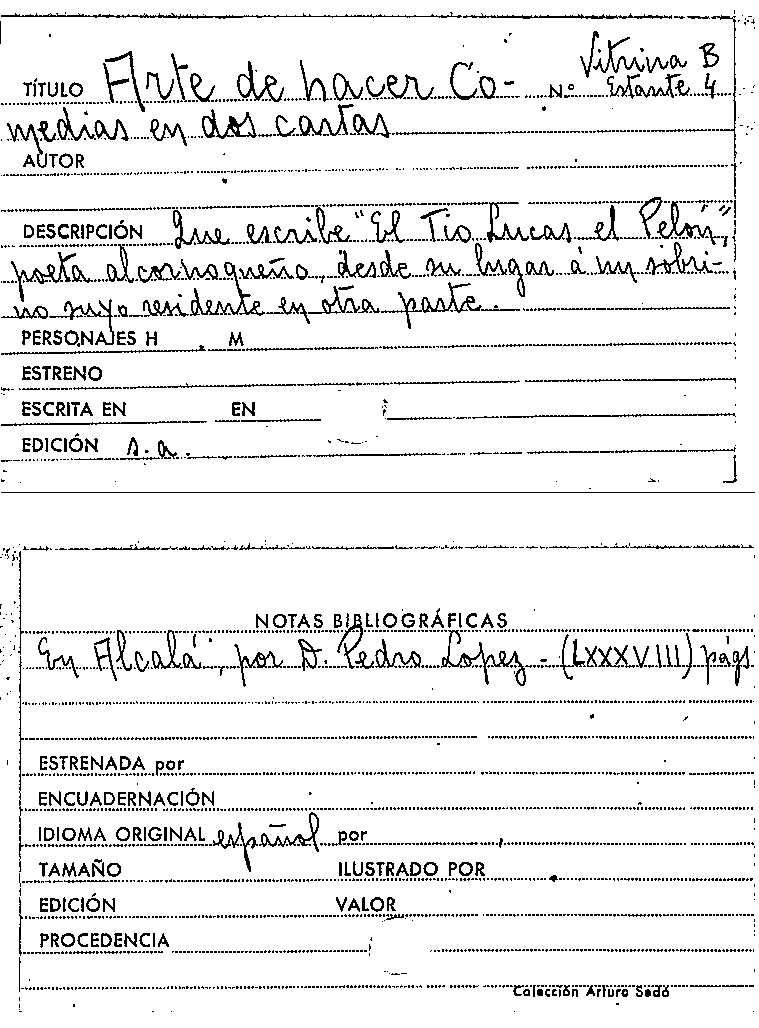 Vitrina B
TÍTULO Arte de hacer Co- Nº Estante 4
medias en dos cartas
AUTOR
DESCRIPCIÓN Que escribe "El Tio Lucas el Pelón",
poeta alcornoqueño, desde su lugar á un sobri-
no suyo residente en otra parte.
PERSONAJES H M
ESTRENO
ESCRITA EN EN
EDICIÓN s.a.
NOTAS BIBLIOGRÁFICAS
En Alcalá, por D. Pedro Lopez - (LXXXVIII) págs
ESTRENADA por
ENCUADERNACIÓN
IDIOMA ORIGINAL español por
TAMAÑO ILUSTRADO POR
EDICIÓN VALOR
PROCEDENCIA
Colección Arturo Sedó